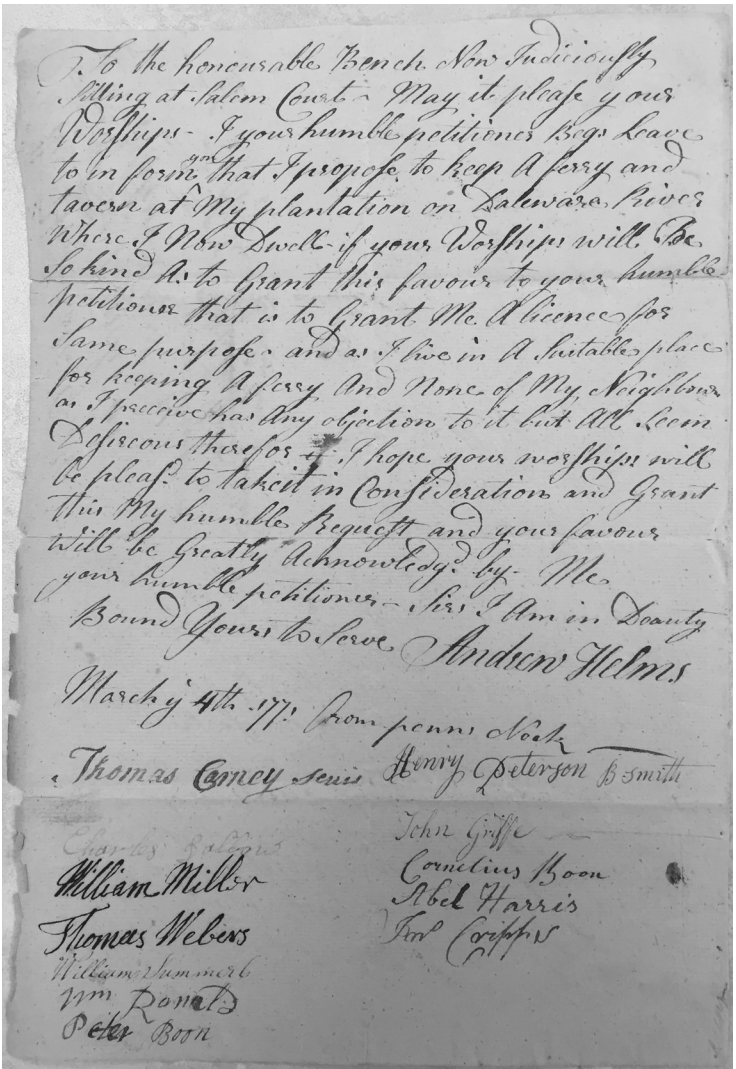 To the honourable Bench Now Judiciously
Sitting at Salem Court - May it please your
Worships - I your humble petitioner Begs Leave
to in form you that I propose to keep A ferry and
tavern at My plantation on Daleware River
Where I Now Dwell - if your Worships will Be
So kind As to Grant this favour to your humble
petitioner that is to Grant Me A licence for
Same purpose - and as I live in A Suitable place
for keeping A ferry And None of My Neighbours
as I preceive has Any objection to it but All Seem
Desireous therefor I hope your worships will
be pleasd to takeit in Consideration and Grant
this My humble Request and your favour
will be Greatly Acknowledgd by - Me
your humble petitioner - Sirs I Am in Deauty
Bound Yours to Serve Andrew Helms
March ye 4th 1771 from penns Neck
Thomas Carney senir Henry Peterson B Smith
Charles
John Griffe
William Miller
Cornelius Boon
Abel Harris
Thomas Webers
Jno Cripps
William Summerl
Wm Donald
Peter Boon